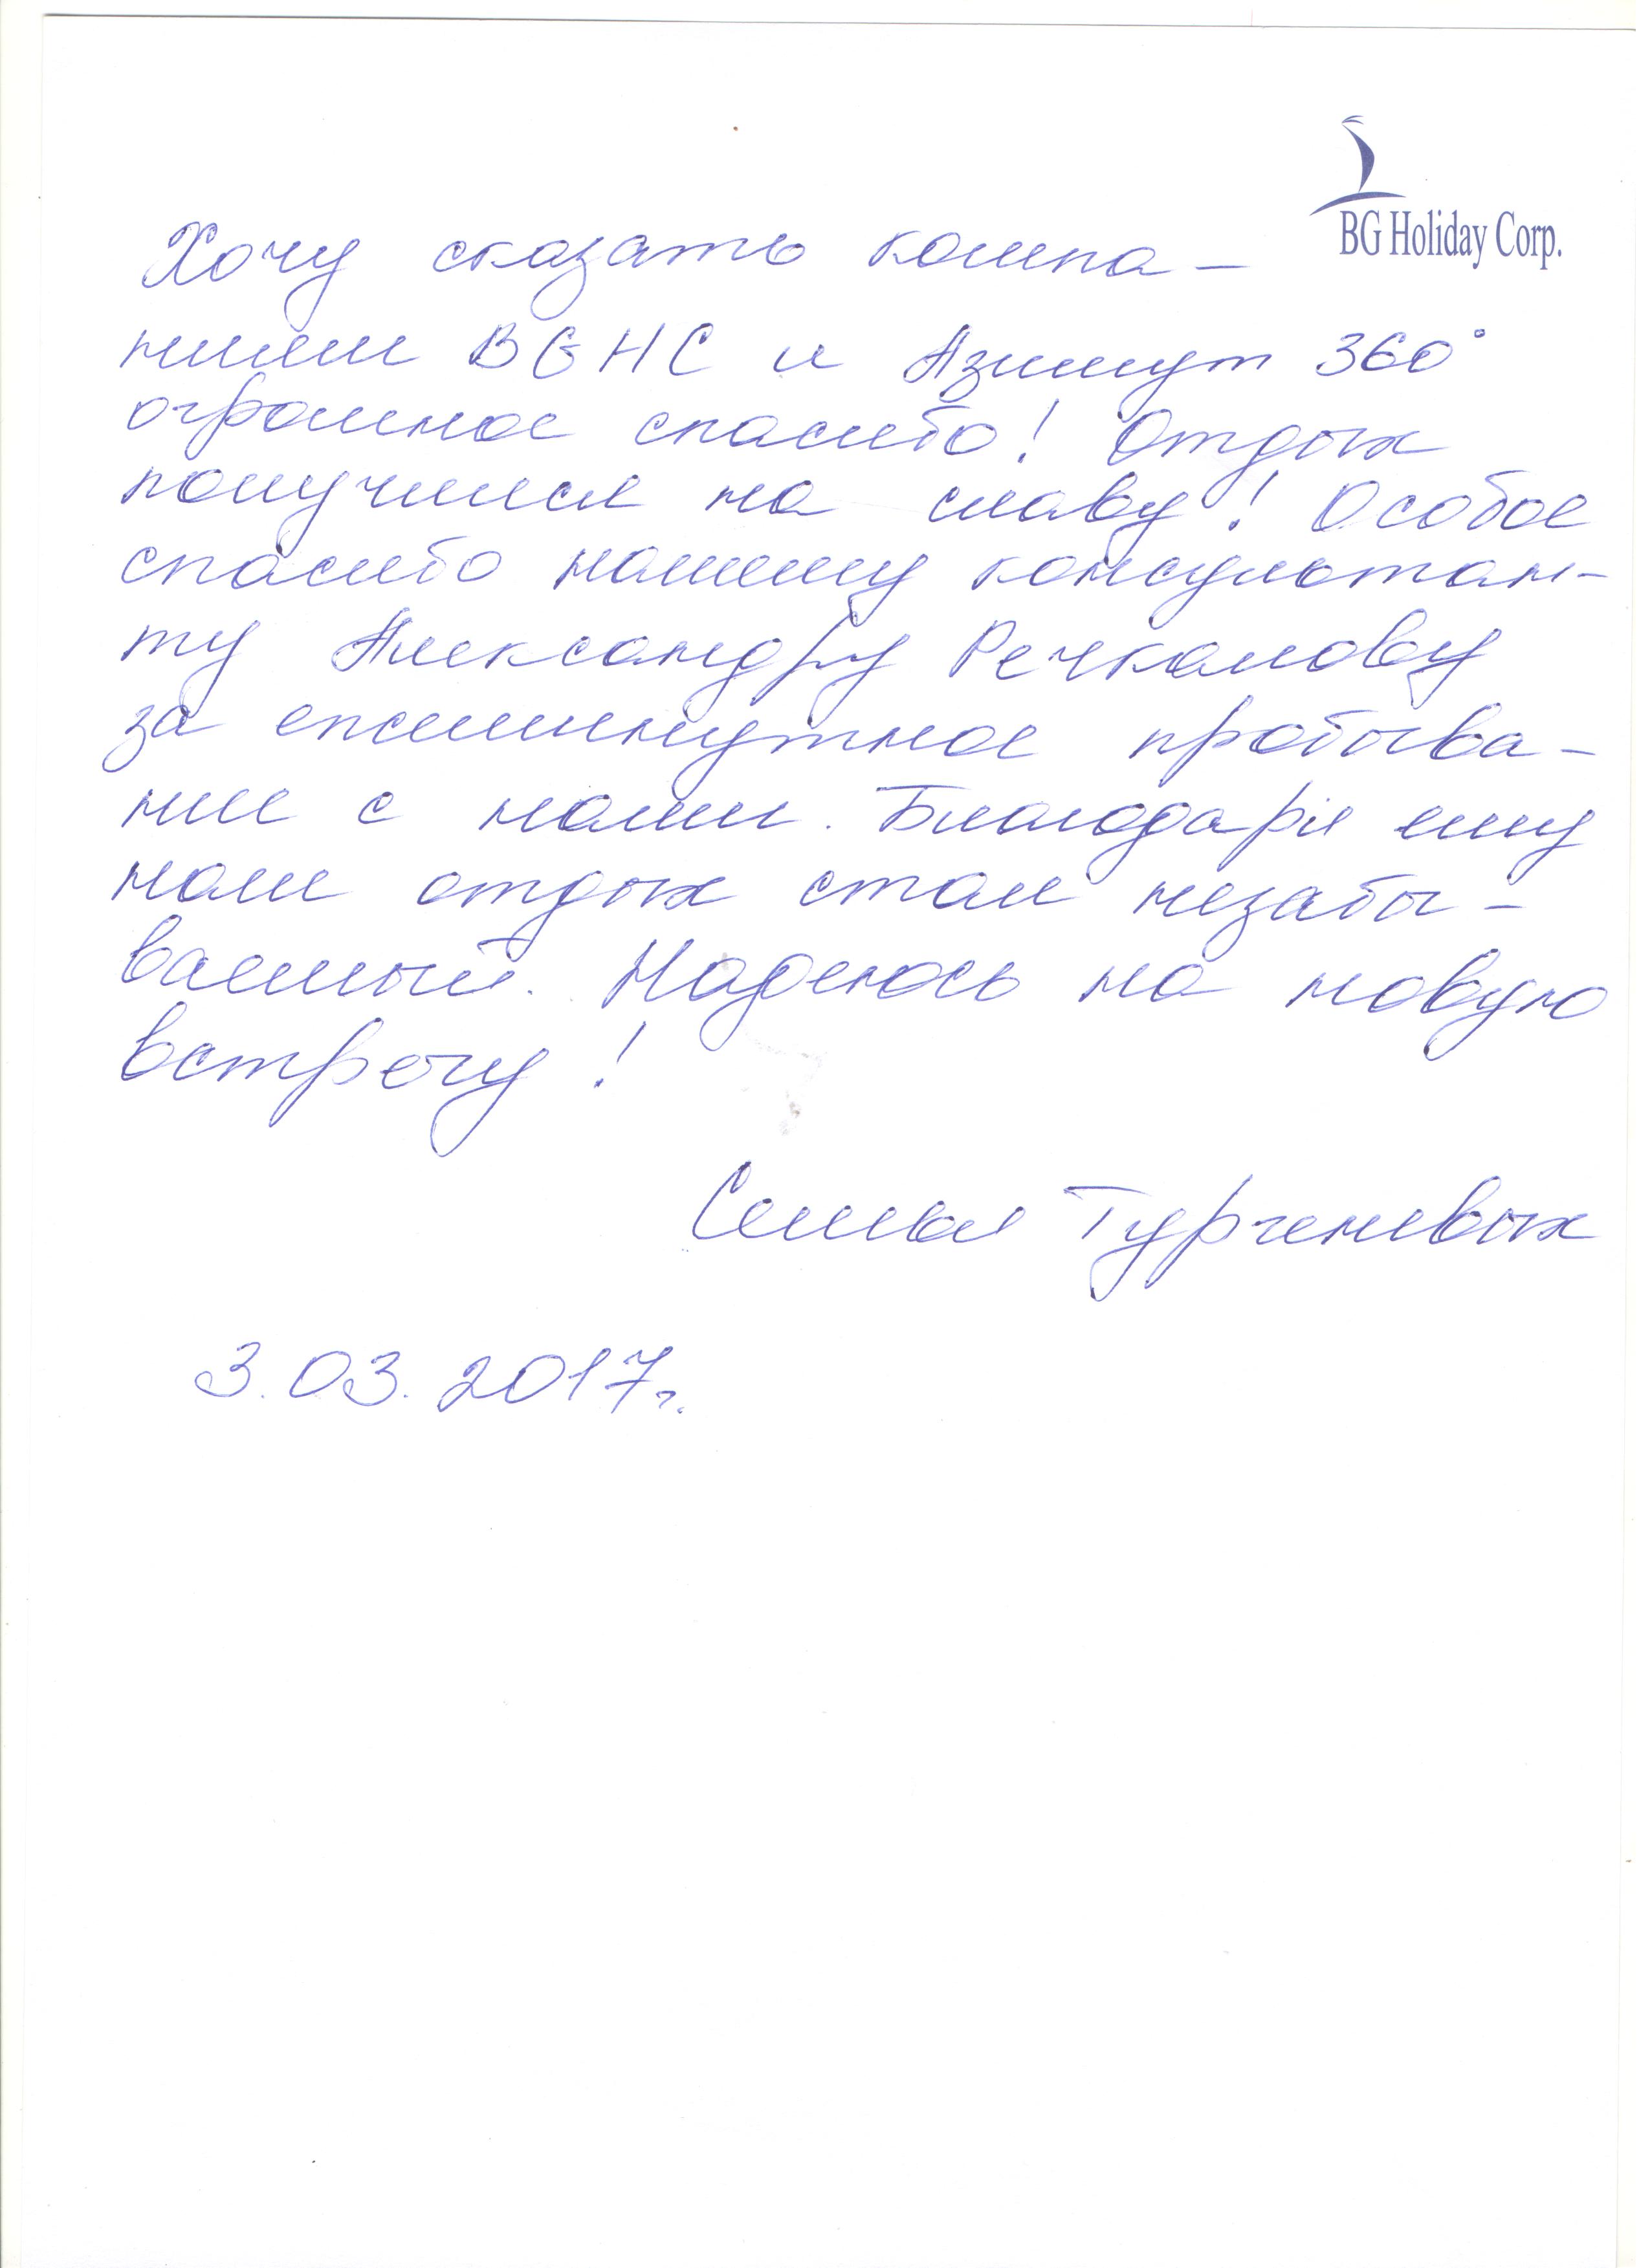 BG Holiday Corp.
Хочу сказать компа-
ниям BGHC и Азимут 360°
огромное спасибо! Отдых
получился на славу! Особое
спасибо нашему консультан-
ту Александру Речкалову
за ежеминутное пробыва-
ние с нами. Благодаря ему
наш отдых стал незабы-
ваемый. Надеюсь на новую
встречу!
Семья Тургеневых
3.03.2017г.